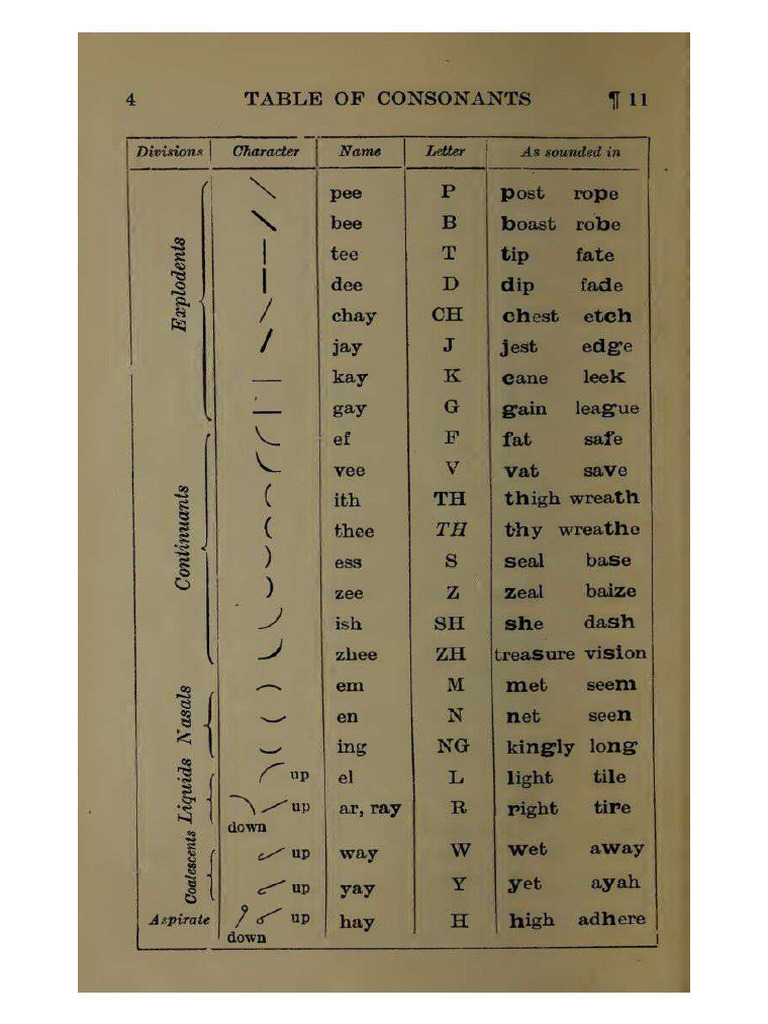 4 TABLE OF CONSONANTS ¶ 11
Divisions Character Name Letter As sounded in
Explodents
pee P post rope
bee B boast robe
tee T tip fate
dee D dip fade
chay CH chest etch
jay J jest edge
kay K cane leek
gay G gain league
Continuants
ef F fat safe
vee V vat save
ith TH thigh wreath
thee TH thy wreathe
ess S seal base
zee Z zeal baize
ish SH she dash
zhee ZH treasure vision
Nasals
em M met seem
en N net seen
ing NG kingly long
Liquids
up el L light tile
up ar, ray R right tire
down
Coalescents
up way W wet away
up yay Y yet ayah
Aspirate up hay H high adhere
down